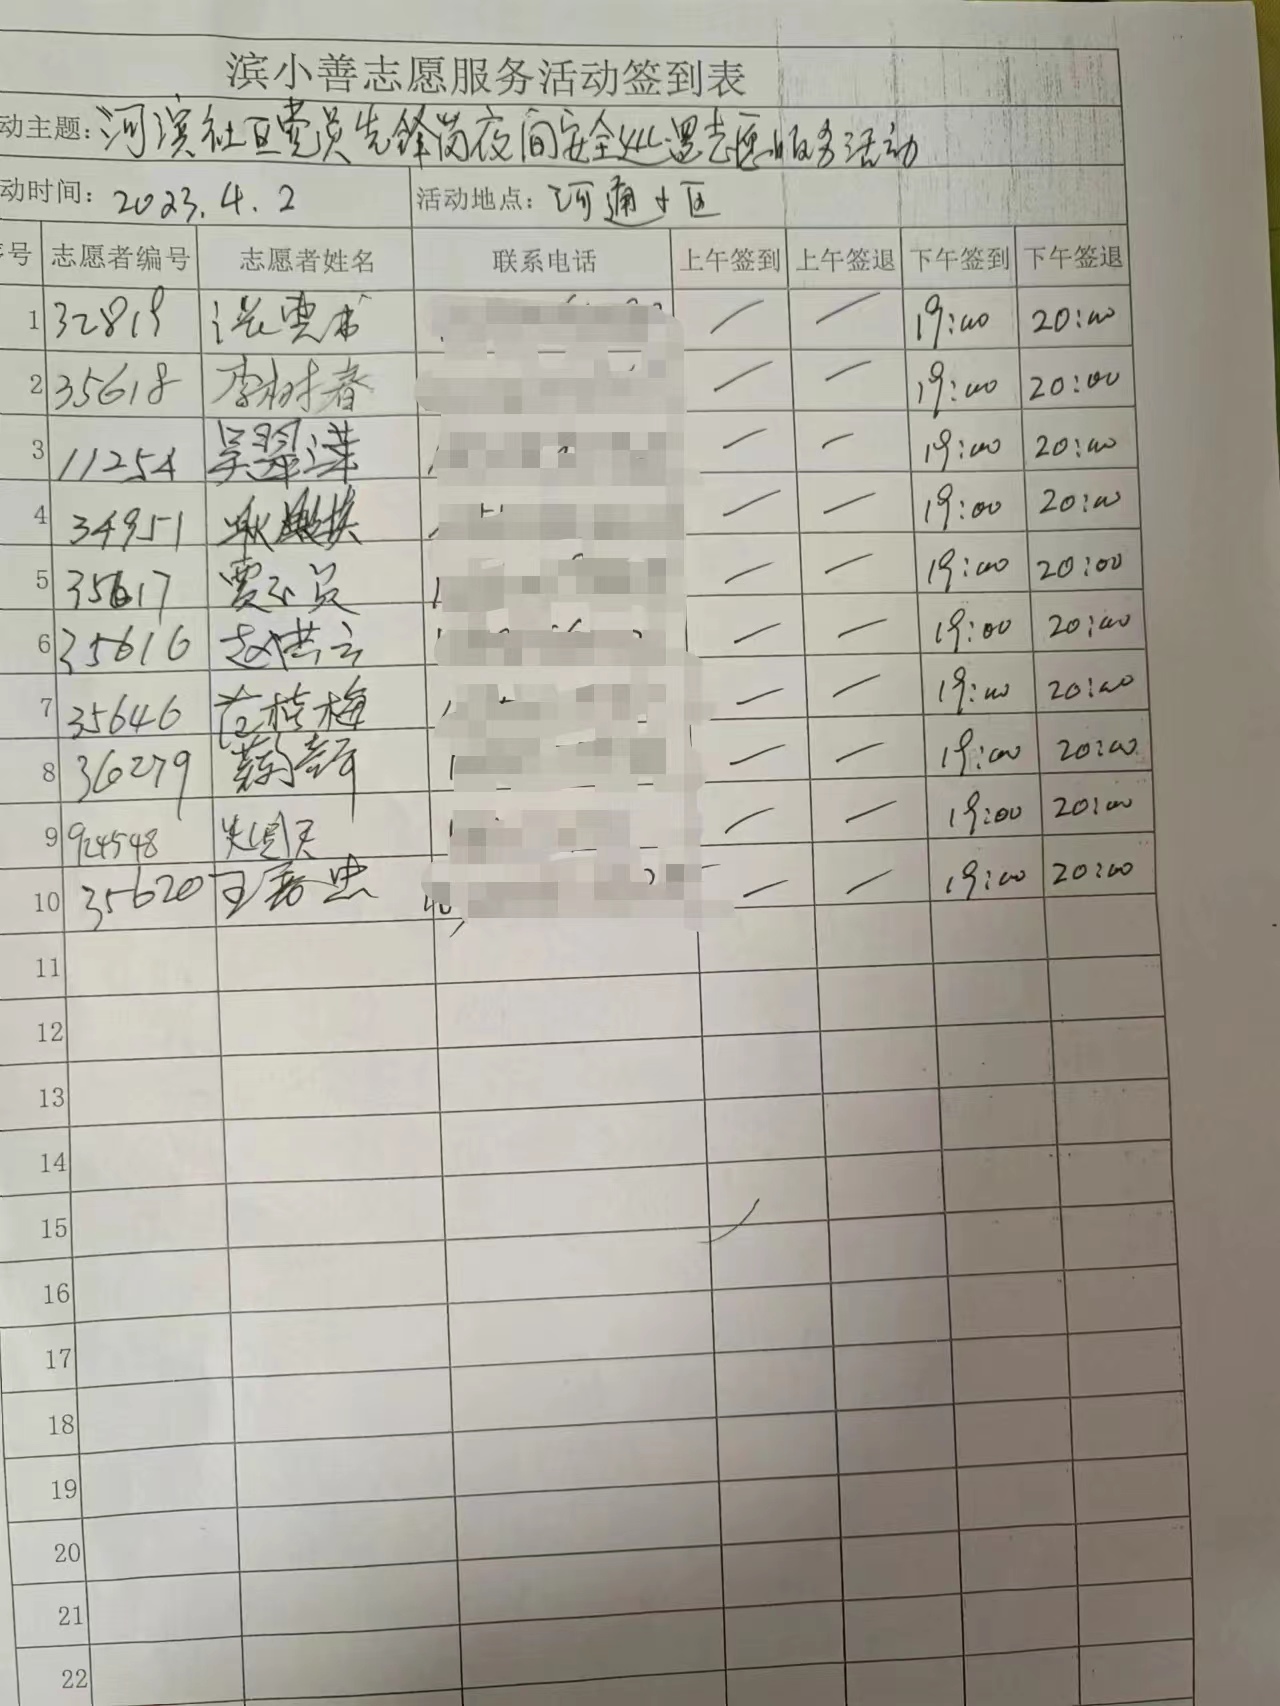 滨小善志愿服务活动签到表
动主题：河滨社区党员先锋岗夜间安全巡逻志愿服务活动
动时间：2023.4.2 活动地点：河通小区
号 志愿者编号 志愿者姓名 联系电话 上午签到 上午签退 下午签到 下午签退
1 32819 19:00 20:00
2 35618 李树春 19:00 20:00
3 11254 吴翠莲 19:00 20:00
4 34951 19:00 20:00
5 35617 19:00 20:00
6 35616 赵洪云 19:00 20:00
7 35646 范桂梅 19:00 20:00
8 36279 19:00 20:00
9 924548 19:00 20:00
10 35620 19:00 20:00
11
12
13
14
15
16
17
18
19
20
21
22